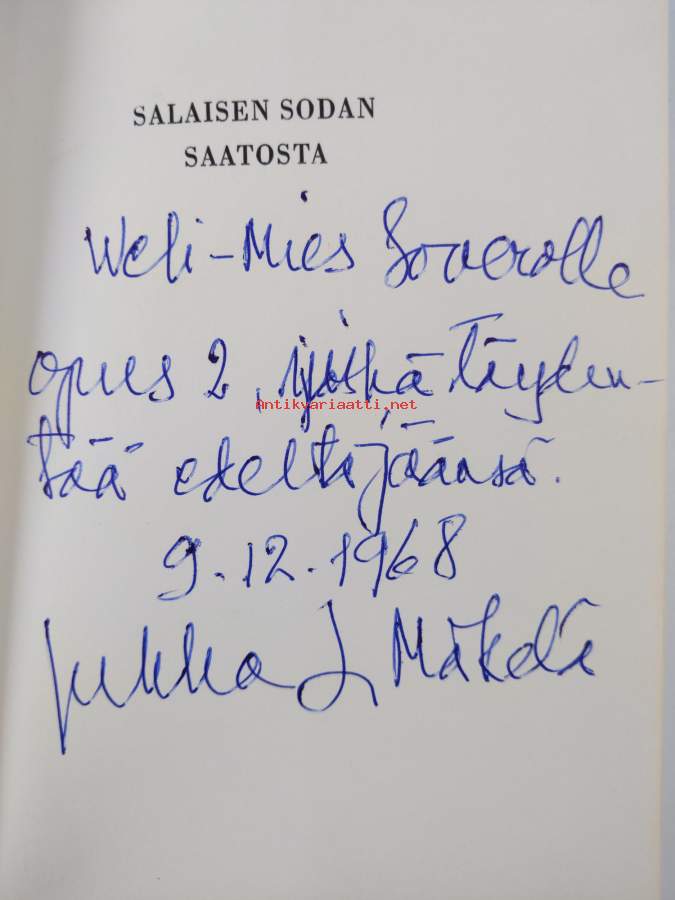 SALAISEN SODAN
SAATOSTA
Weli-Mies Soverolle
opus 2, joka täyden-
tää edeltäjäänsä.
Antikvariaatti.net
9.12.1968
Jukka L Mäkelä